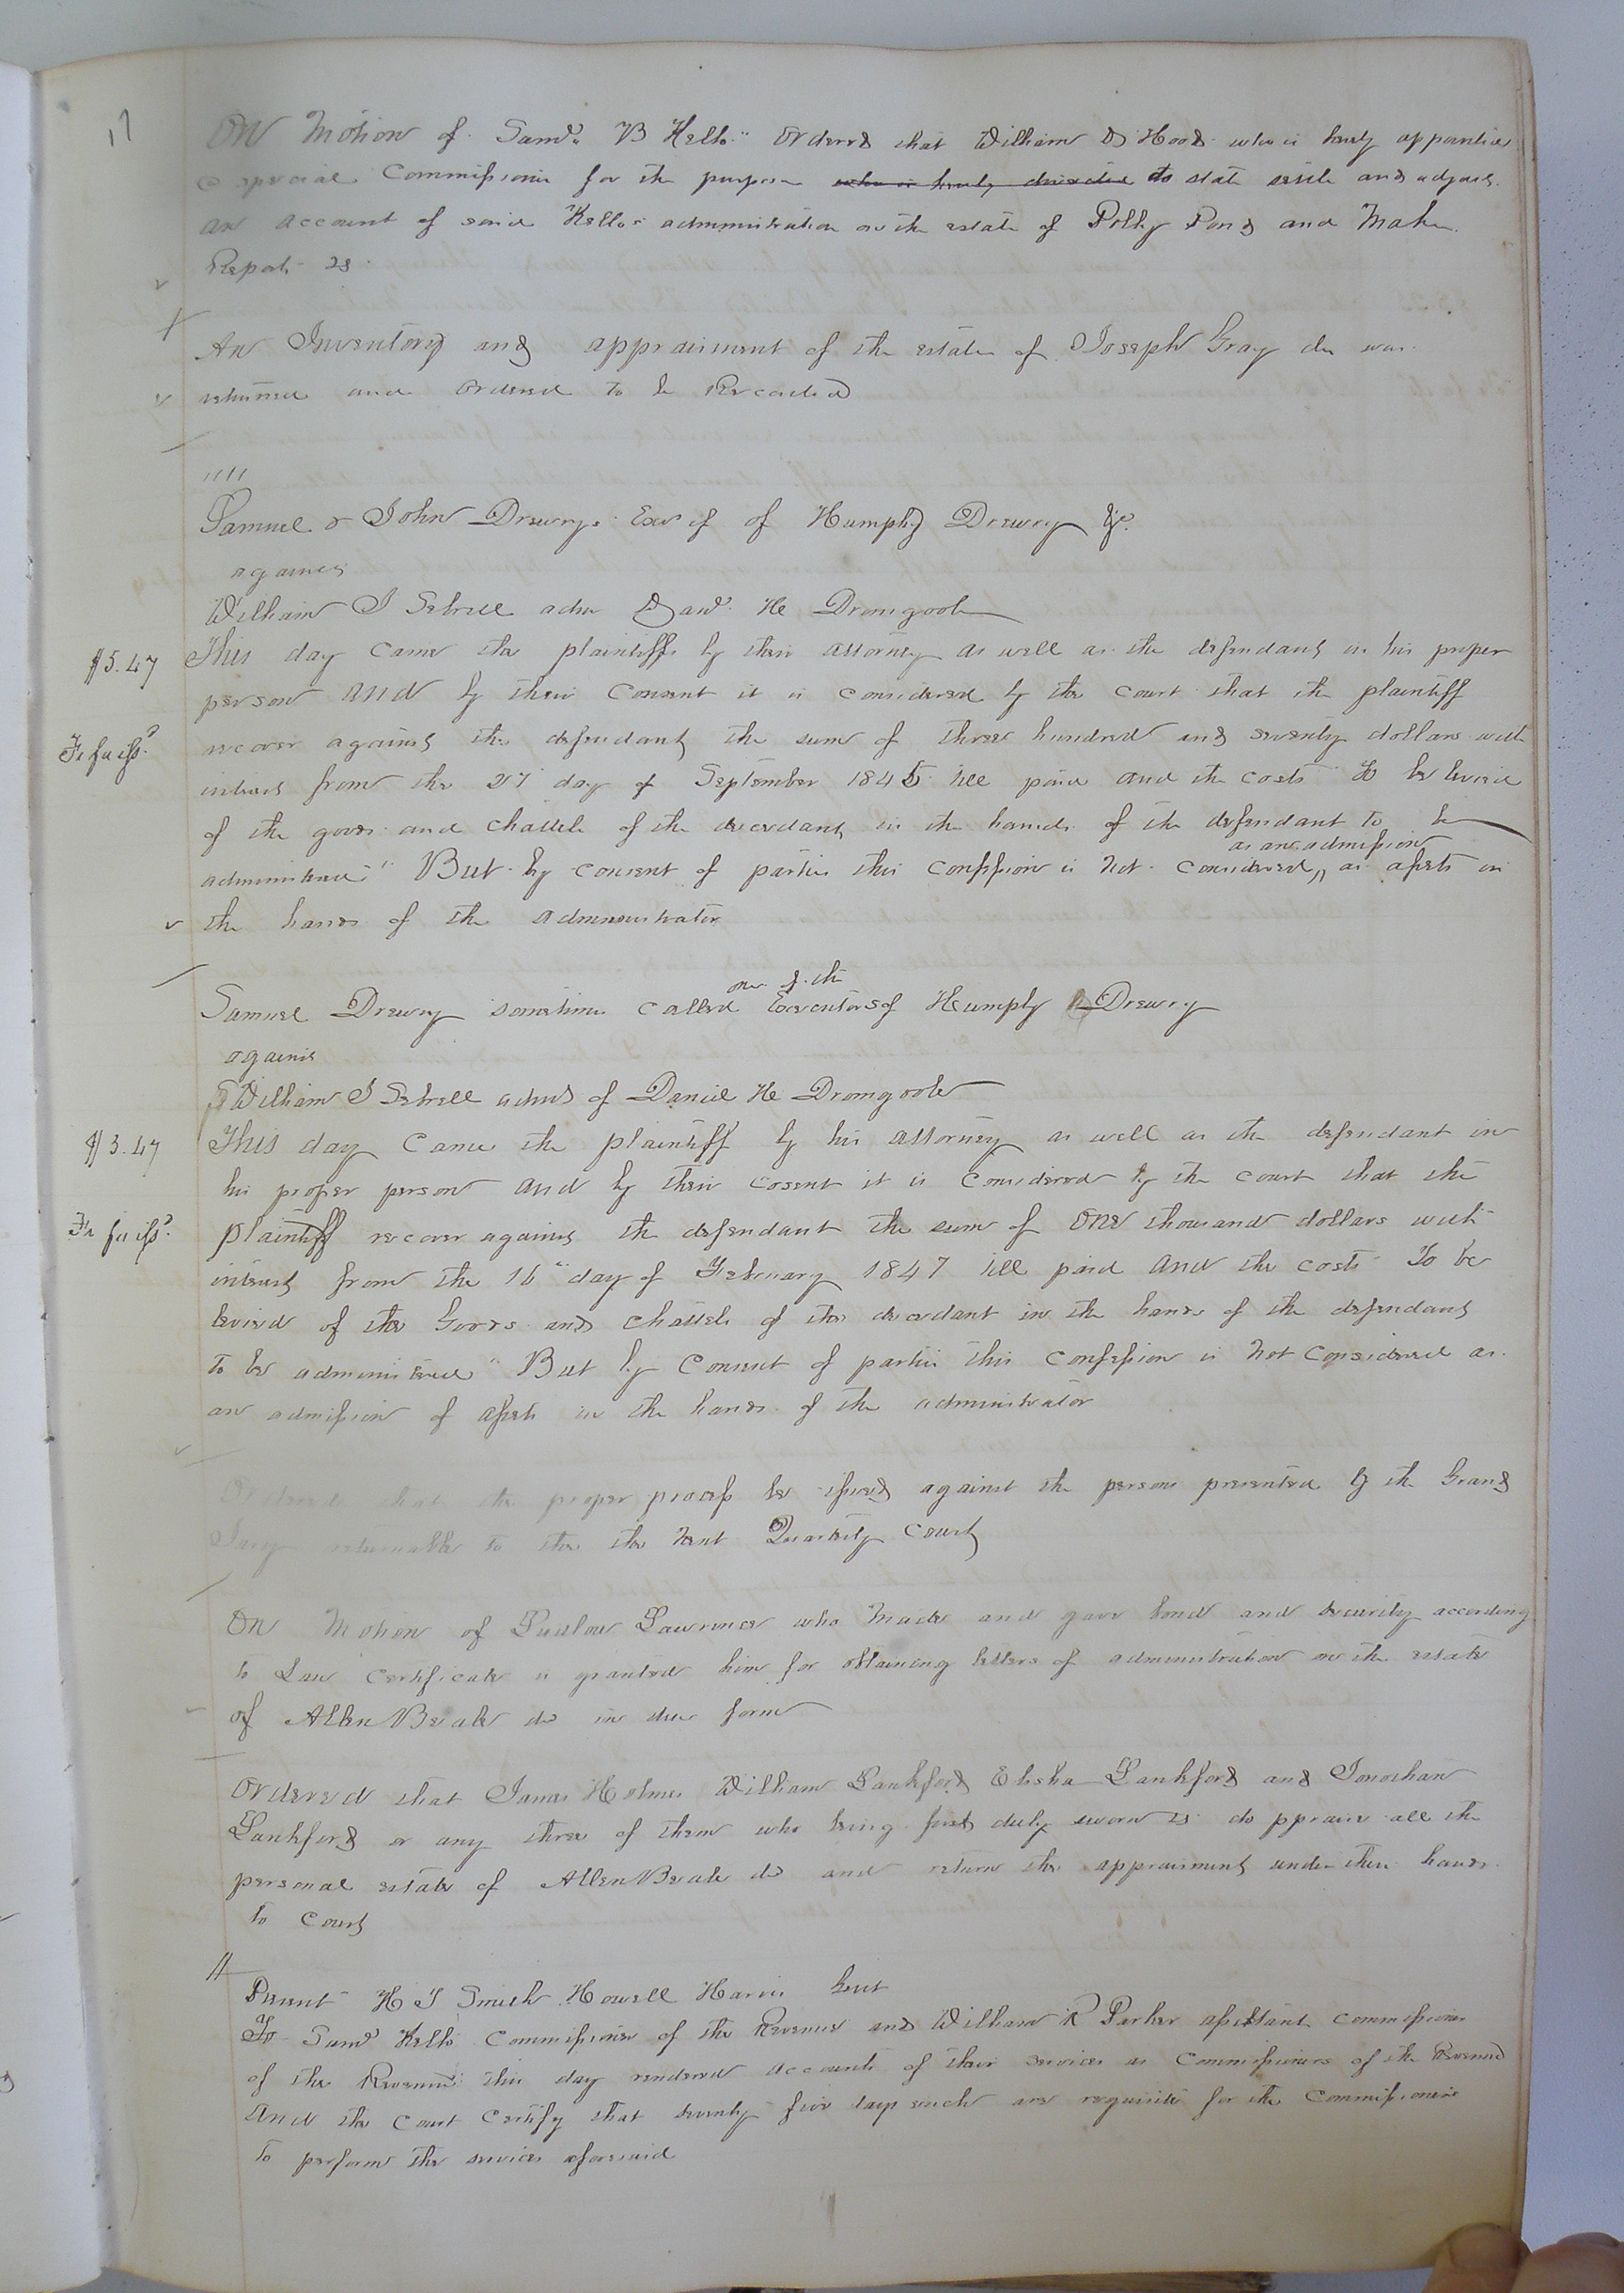 17
On Motion of Saml. B Kello Ordered that William D Hood who is hereby appointed
a special Commissioner for the purpose who is hereby directed to state settle and adjust
an account of said Kello's administration on the estate of Polly Pond and Make
Report &c
An Inventory and appraisment of the estate of Joseph Gray dec was
returned and ordered to be Recorded
Samuel & John Drewry Exors of Humphy Drewry &c.
against
William J Sebrell adm Danl. H Dromgoole
$5.47
This day came the plaintiffs by their attorney as well as the defendant in his proper
person and by their Consent it is considered by the court that the plaintiff
Fi fa issd.
recover against the defendant the sum of three hundred and seventy dollars with
interest from the 27 day of September 1845 till paid and the costs To be levied
of the goods and chattels of the decedant in the hands of the defendant to be
as an admission
administered" But by consent of parties this confession is not considered as assets in
the hands of the administrator
one of the
Samuel Drewry sometimes called Executors of Humphy Drewry
against
William J Sebrell admr of Daniel H Dromgoole
$3.47
This day came the plaintiff by his attorney as well as the defendant in
his proper person and by their cosent it is considered by the court that the
Fi fa issd.
plaintiff recover against the defendant the sum of one thousand dollars with
interest from the 16" day of February 1847 till paid and the costs To be
levied of the Goods and chattels of the decedant in the hands of the defendant
to be administered" But by Consent of parties this confession is not considered as
an admission of assets in the hands of the administrator
Ordered that the proper process be issued against the persons presented by the Grand
Jury returnable to the the next Quarterly Court
On Motion of Lawrence who made and gave bond and security according
to Law Certificate is granted him for obtaining letters of administration on the estate
of Allen Beale de in due form
Ordered that James Holmes William Lankford Elisha Lankford and Jonothan
Lankford or any three of them who being first duly sworn do ppraise all the
personal estate of Allen Beale de and return the appraisment under their hands
to Court
Present H J Smith Howell Harris Gent
Saml Kello Commissioner of the Revenue and William R Parker assistant commissioner
of the Revenue this day rendered accounts of their services as Commissioners of the Revenue
And the Court Certify that seventy five days each are requisite for the Commissioners
to perform the services aforesaid